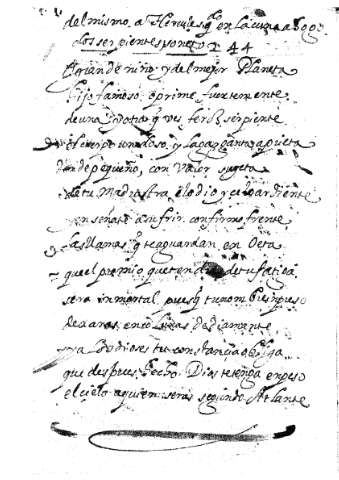 del mismo, a Hercules q en la cuna ahogo
dos serpientes soneto 144
O grande niño y del mejor Planeta
hijo famoso, oprime fuertemente
de una y otra q ves feroz serpiente
el cuerpo undoso, y la garganta aprieta
de pequeño, con valor sugeta
de tu Madrastra el odio y el ardiente
enseñate a sufrir con firme frente
las llamas q te aguardan en Oeta
que el premio que tendra de tu fatiga
sera inmortal, pues q tu nombre
de aras, en columnas de diamante
Dioses tu constancia obliga
que despues hecho Dios te tenga en peso
el cielo a quien seras segundo Atlante